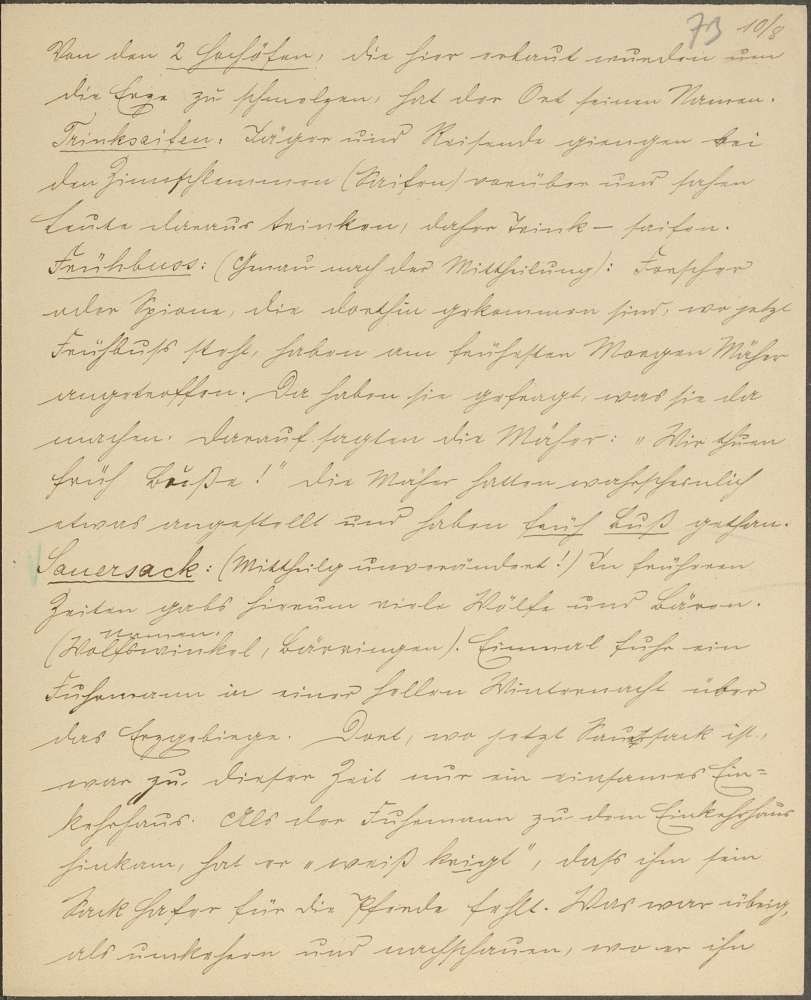 73 10/8
Von den 2 Hochöfen, die hier erbaut wurden um
die Erze zu schmelzen, hat der Ort seinen Namen.
Trinkseifen: Jäger und Reisende giengen bei
den Zinnschlemmen (Saifen) vorüber und sahen
Leute daraus trinken, daher Trink-saifen.
Frühbuos: (Genau nach der Mittheilung): Forscher
oder Spione, die dorthin gekommen sind, wo jetzt
Frühbuß steht, haben am frühesten Morgen Mäher
angetroffen. Da haben sie gefragt, was sie da
machen. Darauf sagten die Mäher: "Wir thuen
früh Buße!" Die Mäher hatten wahrscheinlich
etwas angestellt und haben früh Buß gethan.
Sauersack: (Mittheilg unverändert!) In früheren
Zeiten gabs hierum viele Wölfe und Bären.
Namen:
(Wolfswinkel, Bärringen). Einmal fuhr ein
Fuhrmann in einer hellen Winternacht über
das Erzgebirge. Dort, wo jetzt Sauersack ist,
war zu dieser Zeit nur ein einsames Ein=
kehrhaus. Als der Fuhrmann zu dem Einkehrhaus
hinkam, hat er "weiß kriegt", daß ihm sein
Sack Hafer für die Pferde fehlt. Was war übrig,
als umkehren und nachschauen, wo er ihn